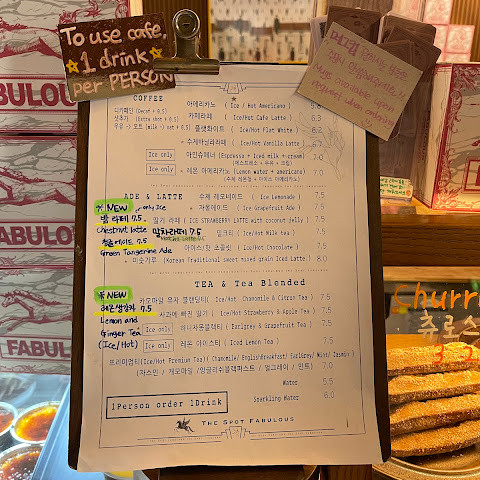 To use cafe,
1 drink
per PERSON
COFFEE
디카페인 (Decaf + 0.5)
샷추가 (Extra shot + 0.5)
우유 -> 오트 (milk -> oat + 0.5)
아메리카노 ( Ice / Hot Americano )
카페라떼 ( Ice/Hot Cafe Latte )
플랫화이트 ( Ice/Hot Flat White ) 6.2
+ 수제바닐라라떼 ( Ice/Hot Vanilla Latte )
Ice only 아인슈페너 (Espresso + Iced milk + cream) 7.0
(에스프레소 + 우유 + 크림)
Ice only 레몬 아메리카노 (Lemon water + americano) 7.0
ADE & LATTE
수제 레모네이드 ( Ice Lemonade ) 7.5
+ 자몽에이드 ( Ice Grapefruit Ade ) 7.5
딸기 라떼 ( ICE STRAWBERRY LATTE with coconut jelly ) 7.5
밀크티 ( Ice/Hot Milk tea ) 7.5
아이스/핫 초콜릿 ( Ice/Hot Chocolate ) 7.5
+ 미숫가루 (Korean Traditional sweet mixed grain Iced Latte ) 8.0
※ NEW only Ice
밤 라떼 7.5
Chestnut latte
말차라떼 7.5
청귤에이드 7.5
Green Tangerine Ade
TEA & Tea Blended
카모마일 유자 블랜딩티 ( Ice/Hot Chamomile & Citron Tea ) 7.5
사과에 빠진 딸기 ( Ice/Hot Strawberry & Apple Tea ) 7.5
Ice only 허니자몽블랙티 ( Earlgrey & Grapefruit Tea ) 7.5
Ice only 레몬 아이스티 ( Iced Lemon Tea ) 7.5
프리미엄티(Ice/Hot Premium Tea)( Chamomile/ EnglishBreakfast/ EarlGrey/ Mint/ Jasmin )
(자스민 / 캐모마일 /잉글리쉬블랙퍼스트 / 얼그레이 / 민트) 7.0
※ NEW
레몬생강차 7.5
Lemon and
Ginger Tea
(Ice/Hot)
Water 5.5
Sparkling Water 6.0
1Person order 1Drink
THE SPOT FABULOUS
Churr
츄로스
FABULOUS
FABUL